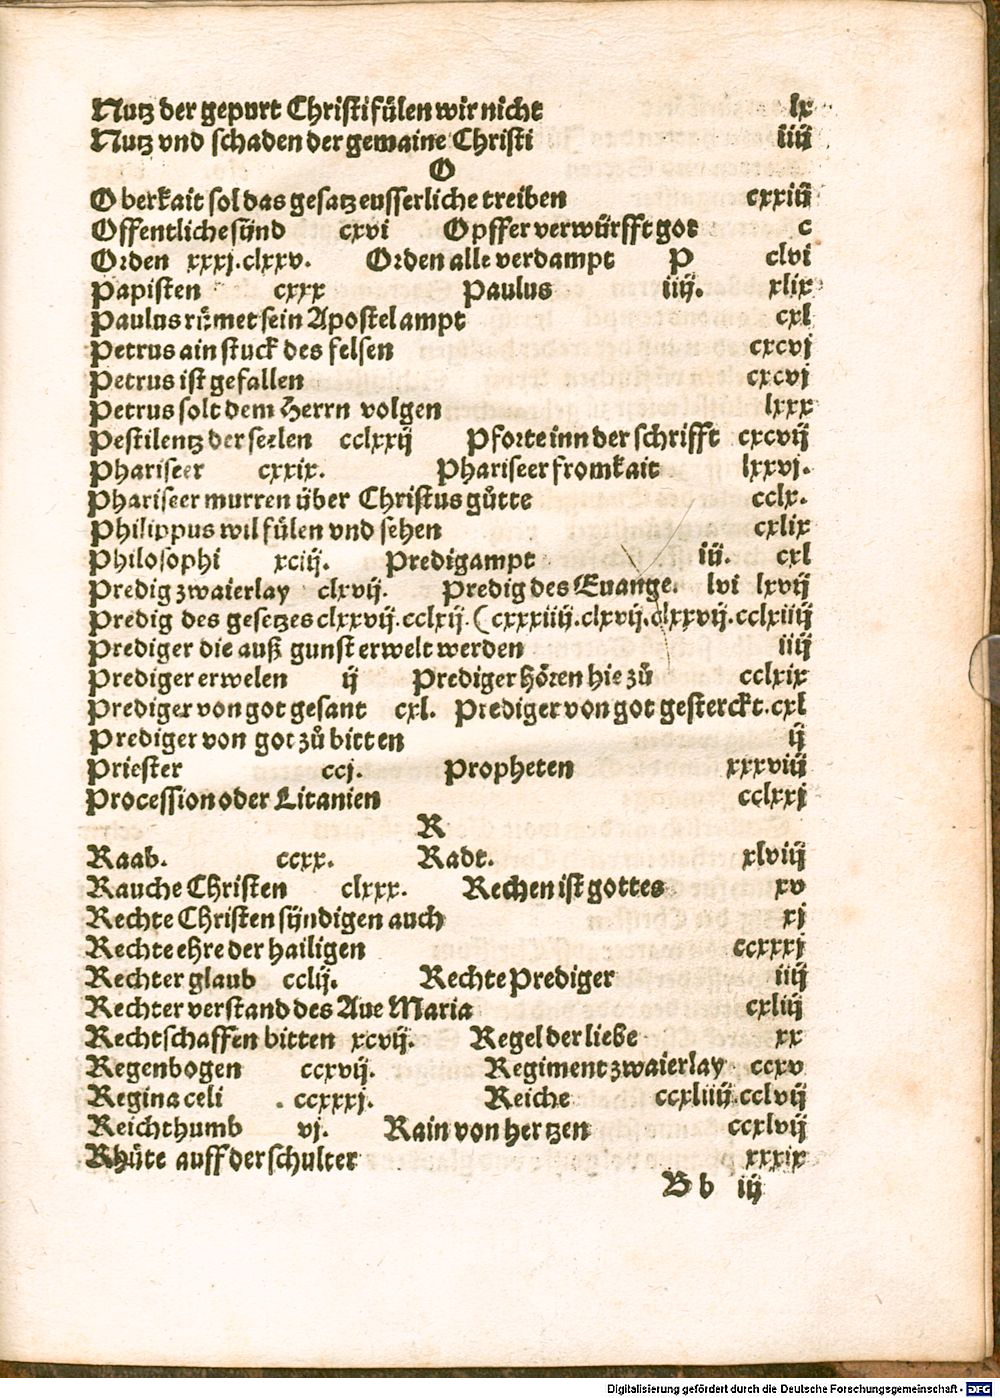 Nutz der gepurt Christi fülen wir nicht lx
Nutz vnd schaden der gemaine Christi iiij
O
Oberkait sol das gesatz eusserliche treiben cxxiij
Offentliche sünd cxvi Opffer verwürfft got c
Orden xxxj.clxxv. Orden alle verdampt P clvi
Papisten cxxx Paulus iiij. xlix
Paulus rümet sein Apostel ampt cxl
Petrus ain stuck des felsen cxcvj
Petrus ist gefallen cxcvj
Petrus solt dem Herrn volgen lxxx
Pestilentz der seelen cclxxij Pforte inn der schrifft cxcvij
Phariseer cxxix. Phariseer fromkait lxxvj.
Phariseer murren über Christus gůtte cclx.
Philippus wil fülen vnd sehen cxlix
Philosophi xciij. Predigampt iij. cxl
Predig zwaierlay clxvij. Predig des Euange. lvi lxvij
Predig des gesetzes clxxvij.cclxij. (cxxxiiij.clxvij.clxxvij.cclxiiij
Prediger die auß gunst erwelt werden iiij
Prediger erwelen ij Prediger hören hie zů cclxix
Prediger von got gesant cxl. Prediger von got gesterckt.cxl
Prediger von got zů bitten ij
Priester ccj. Propheten xxxviij
Procession oder Litanien cclxxj
R
Raab. ccxx. Radt. xlviij
Rauche Christen clxxx. Rechen ist gottes xv
Rechte Christen sündigen auch xj
Rechte ehre der hailigen ccxxxj
Rechter glaub cclij. Rechte Prediger iiij
Rechter verstand des Aue Maria cxliij
Rechtschaffen bitten xcvij. Regel der liebe xx
Regenbogen ccxvij. Regiment zwaierlay ccxv
Regina celi . ccxxxj. Reiche ccxliiij.cclvij
Reichthumb vj. Rain von hertzen ccxlvij
Rhüte auff der schulter xxxix
Bb iij
Digitalisierung gefördert durch die Deutsche Forschungsgemeinschaft - DFG